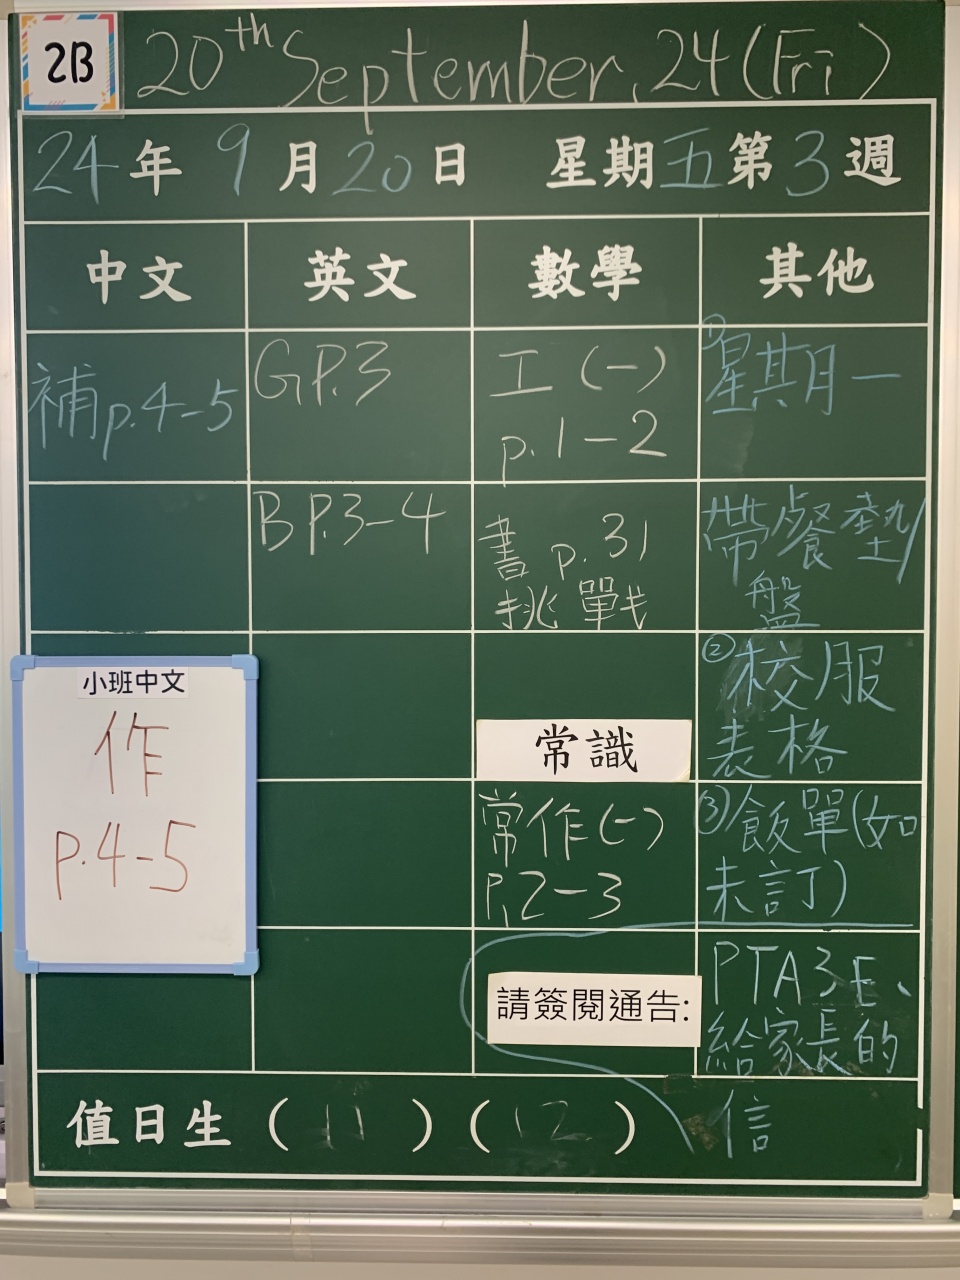 2B
20th September, 24 (Fri)
24年 9月20日 星期五第3週
中文 英文 數學 其他
補p.4-5
GP.3
BP.3-4
工(一)
p.1-2
書p.31
挑戰
常識
常作(一)
P.2-3
①星期一
帶餐墊/
盤
②校服
表格
③飯單(如
未訂)
小班中文
作
P.4-5
請簽閱通告:
PTA3E、
給家長的
信
值日生(11)(12)